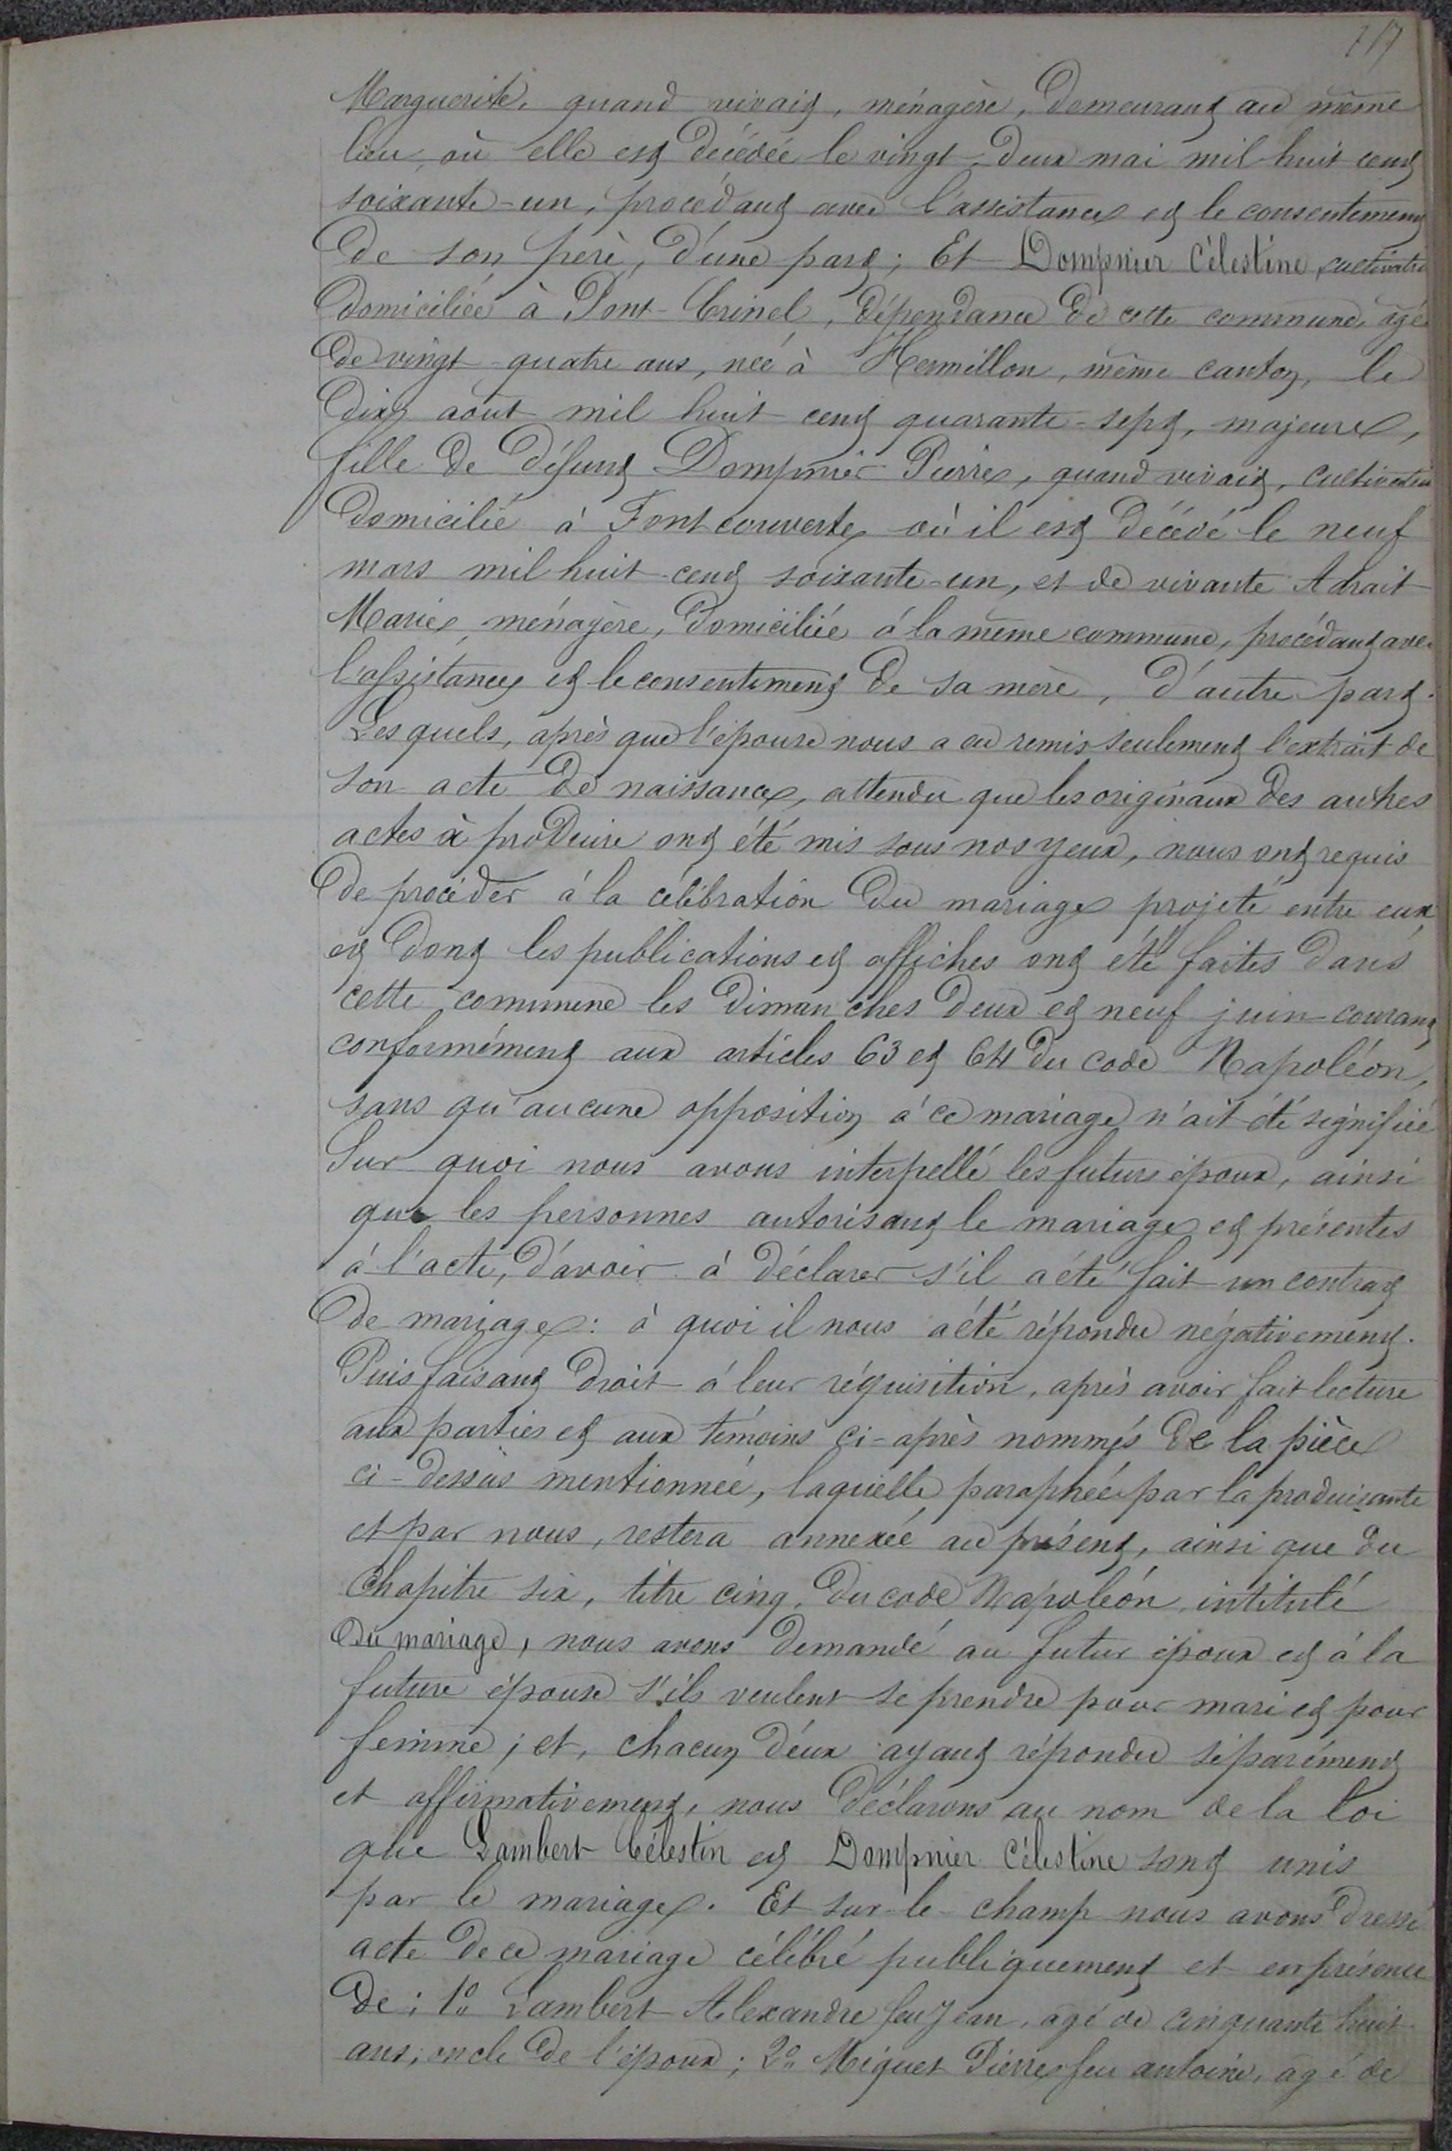 717
Marguerite, quand vivait, ménagère, demeurant au même
lieu où elle est décédée le vingt-deux mai mil huit cent
soixante-un, procédant avec l'assistance et le consentement
de son père, d'une part; Et Dompnier Célestine, cultivatri
domiciliée à Pont-Crinel, dépendance de cette commune, âgé
de vingt-quatre ans, née à Hermillon, même canton, le
dix août mil huit cent quarante-sept, majeure,
fille de défunt Dompnier Pierre, quand vivait, cultivateur
domicilié à Fontcouverte où il est décédé le neuf
mars mil huit-cent soixante-un, et de vivante Adrait
Marie, ménagère, domiciliée à la même commune, procédant avec
l'assistance et le consentement de sa mère, d'autre part.
Lesquels, après que l'épouse nous a eu remis seulement l'extrait de
son acte de naissance, attendu que les originaux des autres
actes à produire ont été mis sous nos yeux, nous ont requis
de procéder à la célébration du mariage projeté entre eux
et dont les publications et affiches ont été faites dans
cette commune les dimanches deux et neuf juin courant
conformément aux articles 63 et 64 du code Napoléon,
sans qu'aucune opposition à ce mariage n'ait été signifiée
Sur quoi nous avons interpellé les futurs époux, ainsi
que les personnes autorisant le mariage et présentes
à l'acte, d'avoir à déclarer s'il a été fait un contrat
de mariage: à quoi il nous a été répondu négativement.
Puis faisant droit à leur réquisition, après avoir fait lecture
aux parties et aux témoins ci-après nommés de la pièce
ci-dessus mentionnée, laquelle paraphée par la produisante
et par nous, restera annexée au présent, ainsi que du
Chapitre six, titre cinq, du code Napoléon, intitulé
Du mariage, nous avons demandé au futur époux et à la
future épouse s'ils veulent se prendre pour mari et pour
femme; et, chacun d'eux ayant répondu séparément
et affirmativement, nous déclarons au nom de la loi
que Lambert Célestin et Dompnier Célestine sont unis
par le mariage. Et sur-le-champ nous avons dressé
acte de ce mariage célébré publiquement et en présence
de: 1º Lambert Alexandre feu Jean, âgé de cinquante huit
ans, oncle de l'époux; 2º Miguet Pierre feu antoine, âgé de